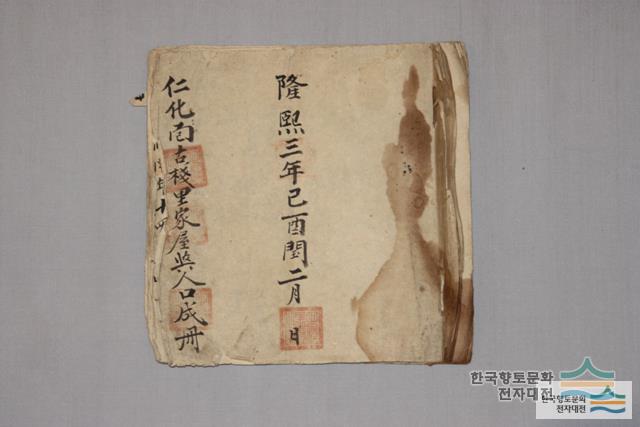 隆熙三年己酉閏二月 日
仁化面古棧里家屋與人口成冊
한국향토문화
전자대전
한국향토문화
전자대전